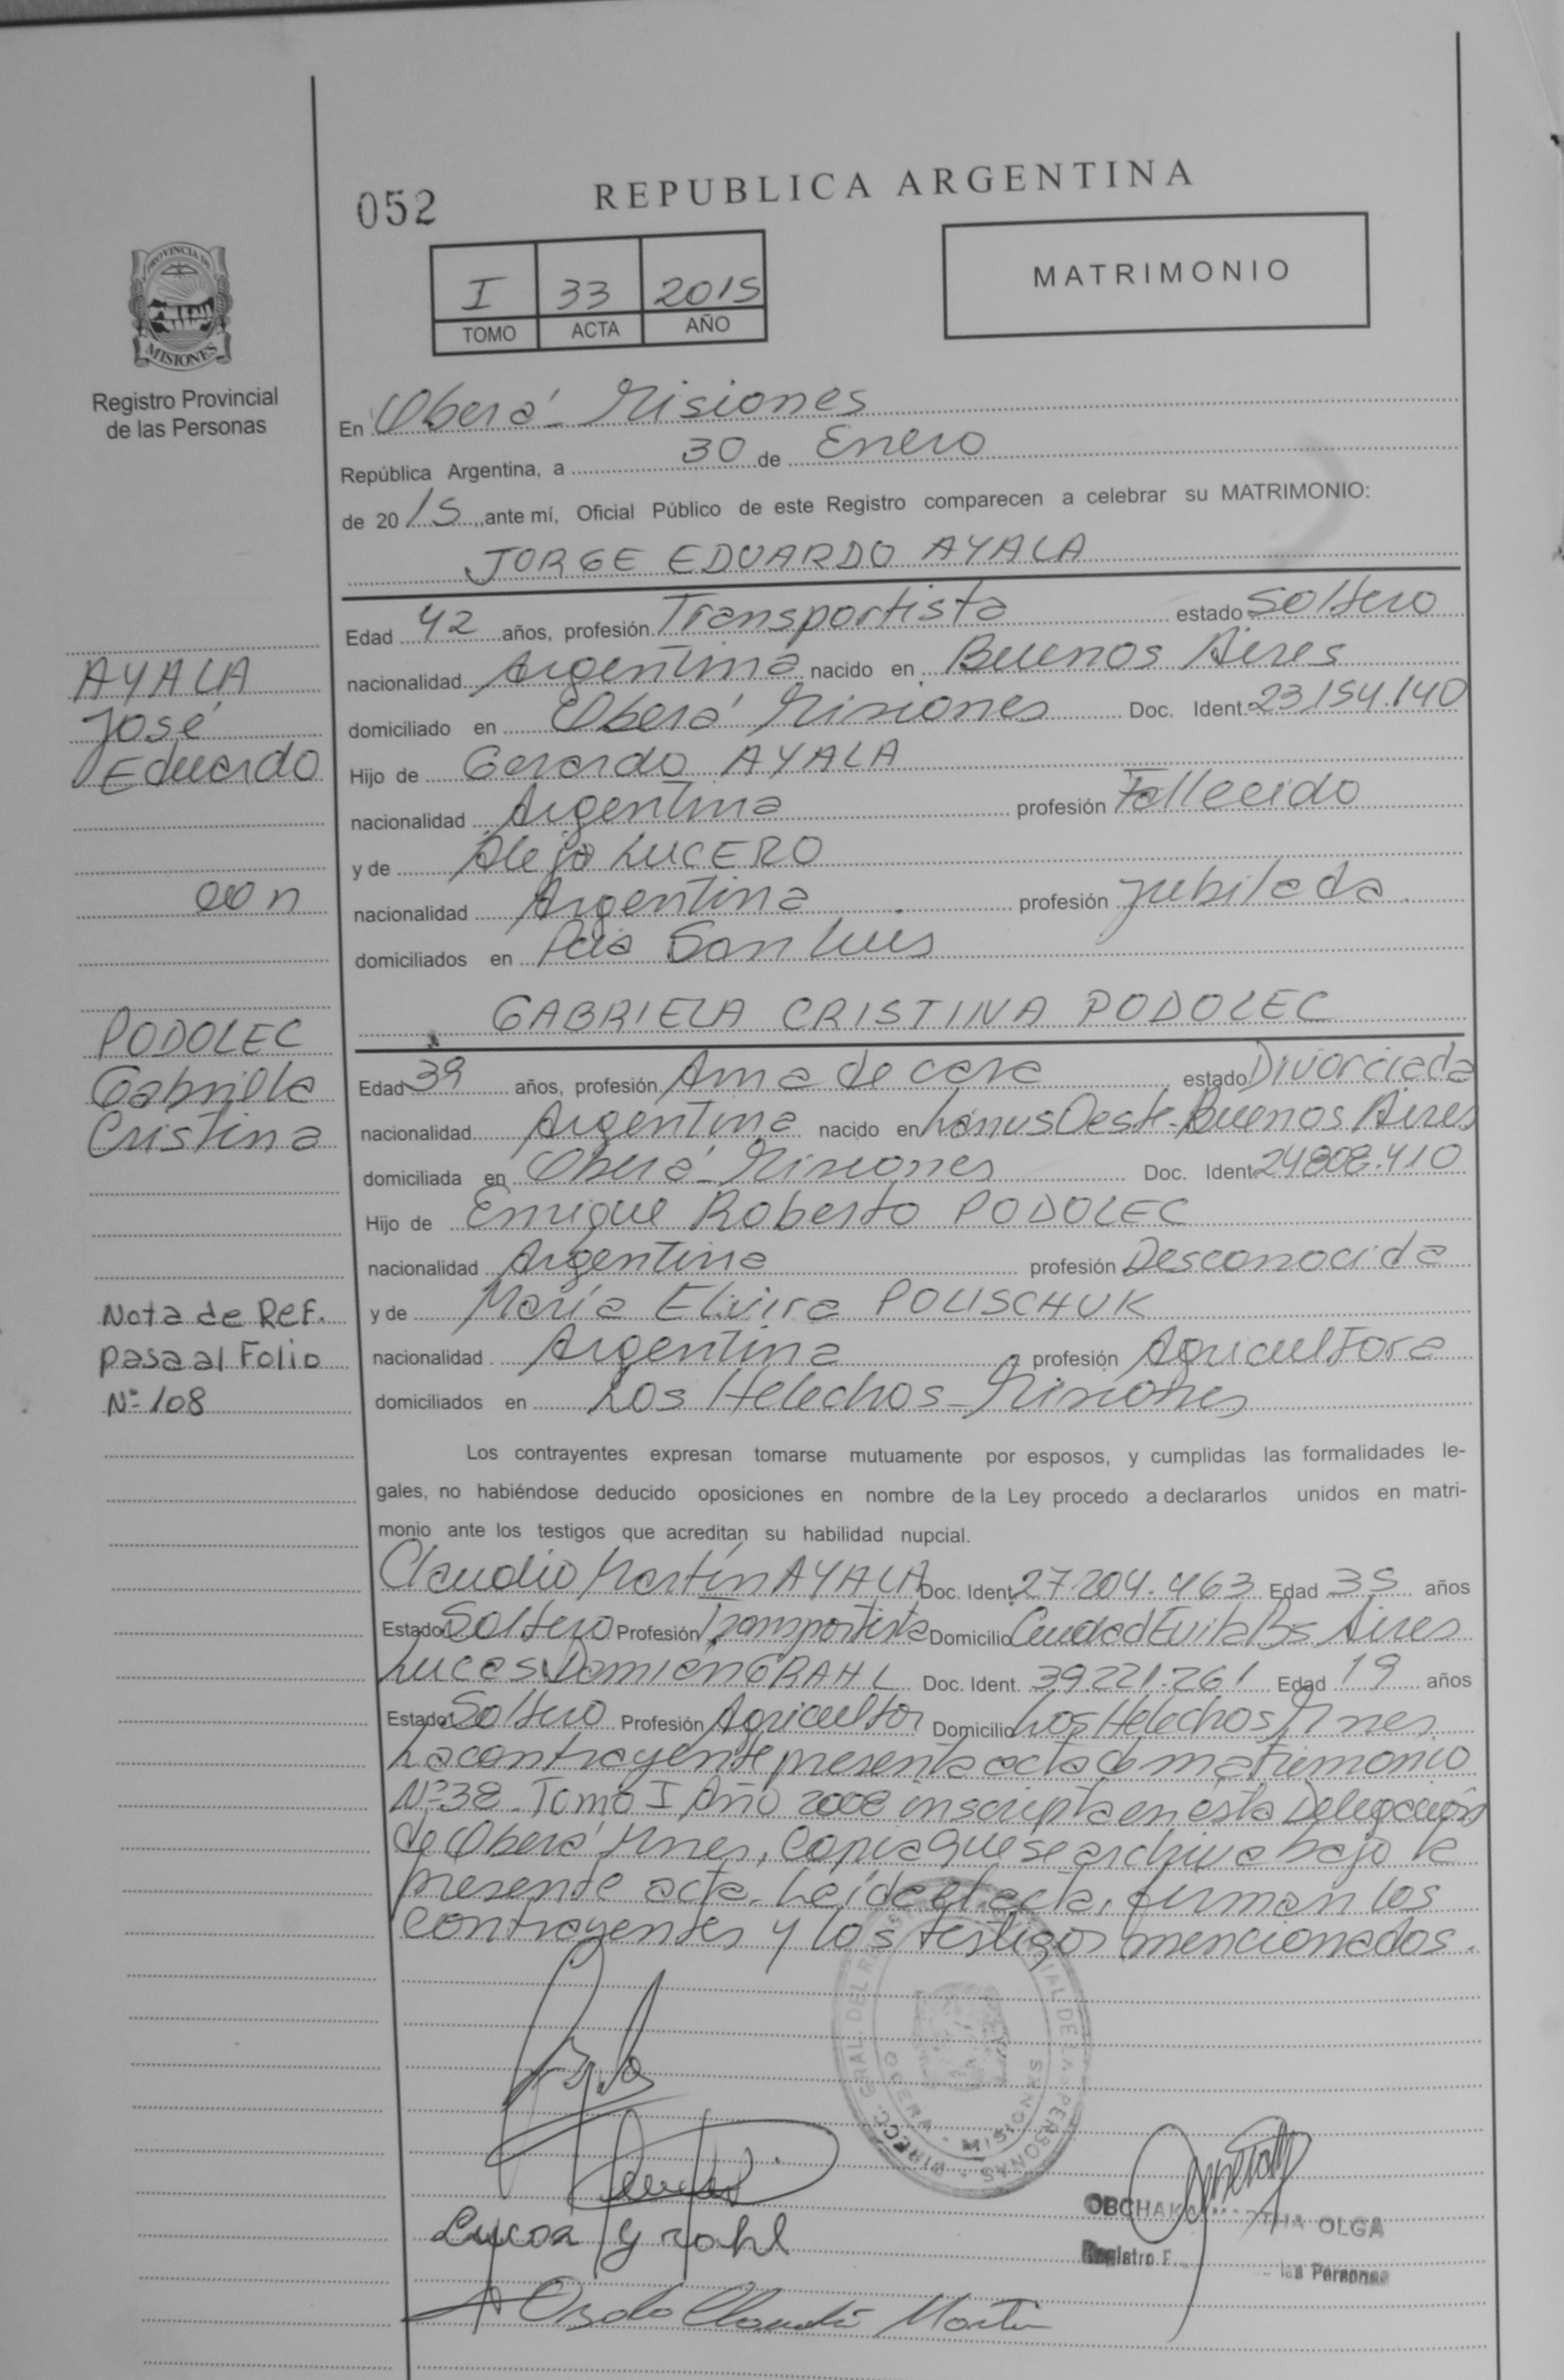 052
REPUBLICA ARGENTINA
I 33 2015
TOMO ACTA AÑO
MATRIMONIO
PROVINCIA DE
MISIONES
Registro Provincial
de las Personas
En Oberá - Misiones
República Argentina, a 30 de Enero
de 2015, ante mí, Oficial Público de este Registro comparecen a celebrar su MATRIMONIO:
JORGE EDUARDO AYALA
Edad 42 años, profesión Transportista estado Soltero
nacionalidad Argentina nacido en Buenos Aires
domiciliado en Oberá Misiones Doc. Ident. 23.154.140
Hijo de Gerardo AYALA
nacionalidad Argentina profesión Fallecido
y de Aleja LUCERO
nacionalidad Argentina profesión jubilada
domiciliados en Pcia San Luis
AYALA
José
Eduardo
con
PODOLEC
Gabriela
Cristina
GABRIELA CRISTINA PODOLEC
Edad 39 años, profesión Ama de casa estado Divorciada
nacionalidad Argentina nacido en Lanus Oeste - Buenos Aires
domiciliada en Oberá - Misiones Doc. Ident. 24.808.410
Hijo de Enrique Roberto PODOLEC
nacionalidad Argentina profesión Desconocida
y de María Elvira POLISCHUK
nacionalidad Argentina profesión Agricultora
domiciliados en Los Helechos - Misiones
Nota de Ref.
pasa al Folio
N° 108
Los contrayentes expresan tomarse mutuamente por esposos, y cumplidas las formalidades le-
gales, no habiéndose deducido oposiciones en nombre de la Ley procedo a declararlos unidos en matri-
monio ante los testigos que acreditan su habilidad nupcial.
Claudio Martín AYALA Doc. Ident. 27.204.463 Edad 35 años
Estado Soltero Profesión Transportista Domicilio Ciudad Evita Bs Aires
Lucas Damián GRAHL Doc. Ident. 39.221.261 Edad 19 años
Estado Soltero Profesión Agricultor Domicilio Los Helechos Mnes
La contrayente presenta acta de matrimonio
N° 38 - Tomo I Año 2008 inscripta en esta Delegación
de Oberá Mnes, copia que se archiva bajo la
presente acta. Leída el acta, firman los
contrayentes y los testigos mencionados.
Lucas Grahl
OLGA
Registro
las Personas